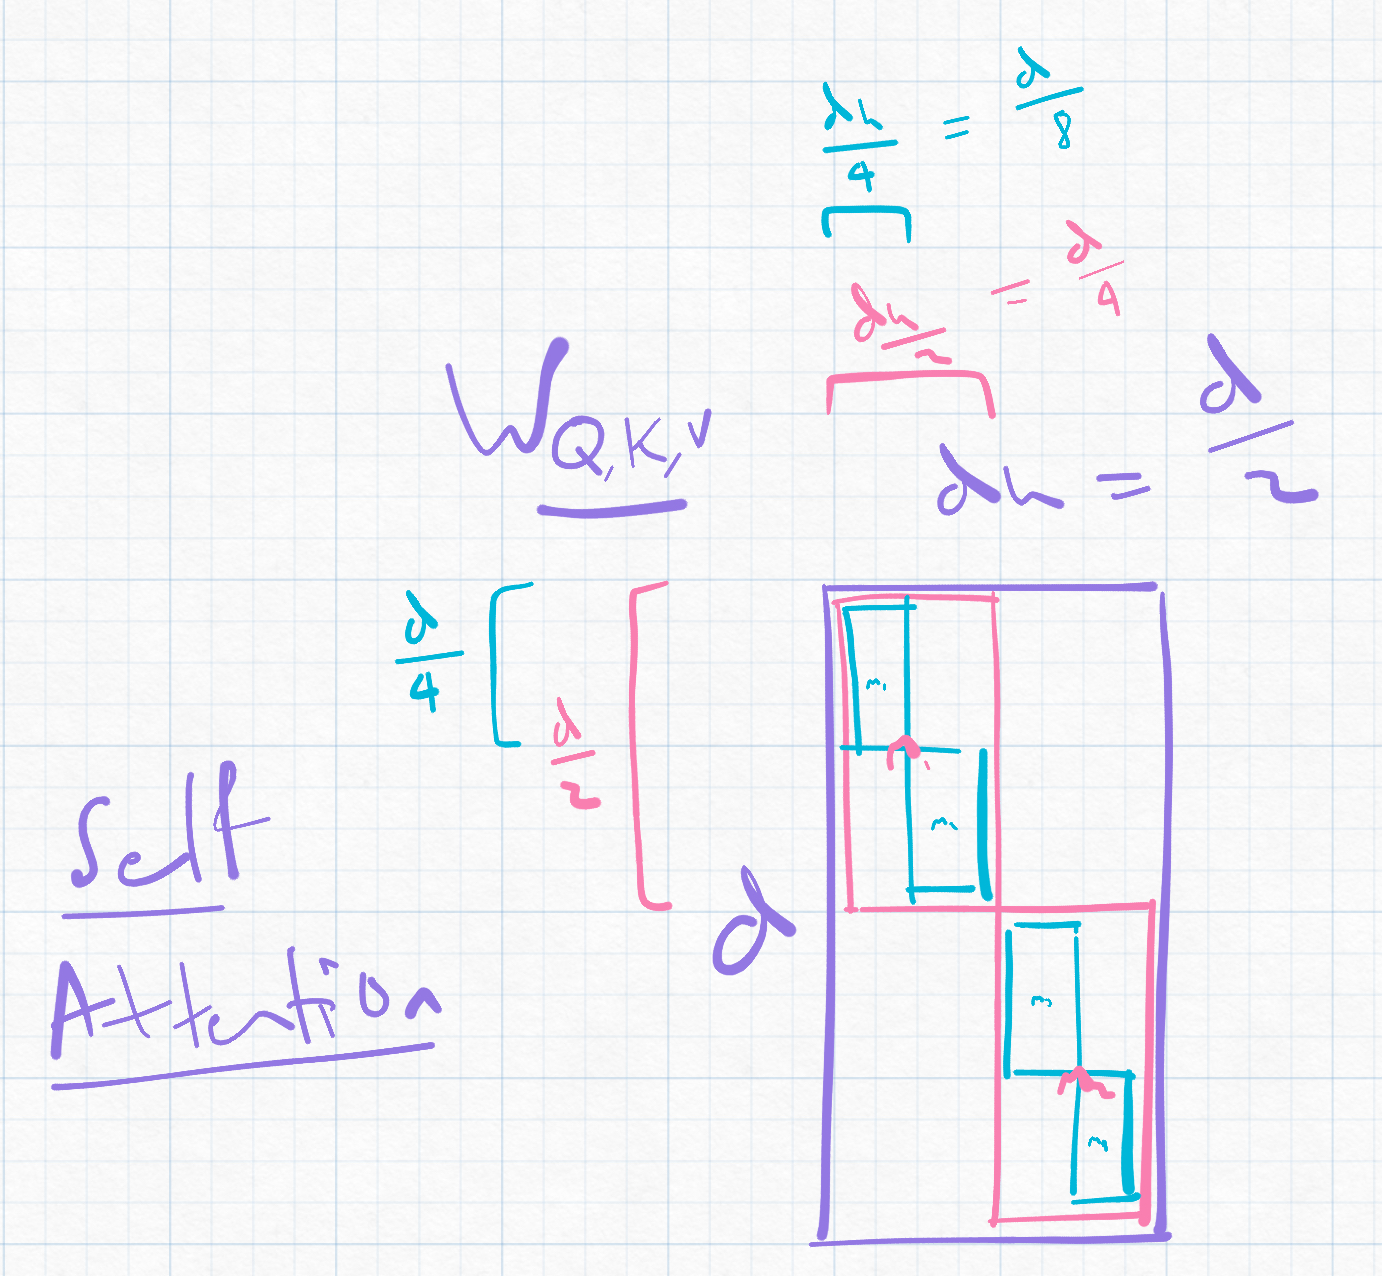 dh/4 = d/8
dh/2 = d/4
W Q, K, V
dh = d/2
d/4
d/2
m₁
m₁
Self
d
Attention
m
m